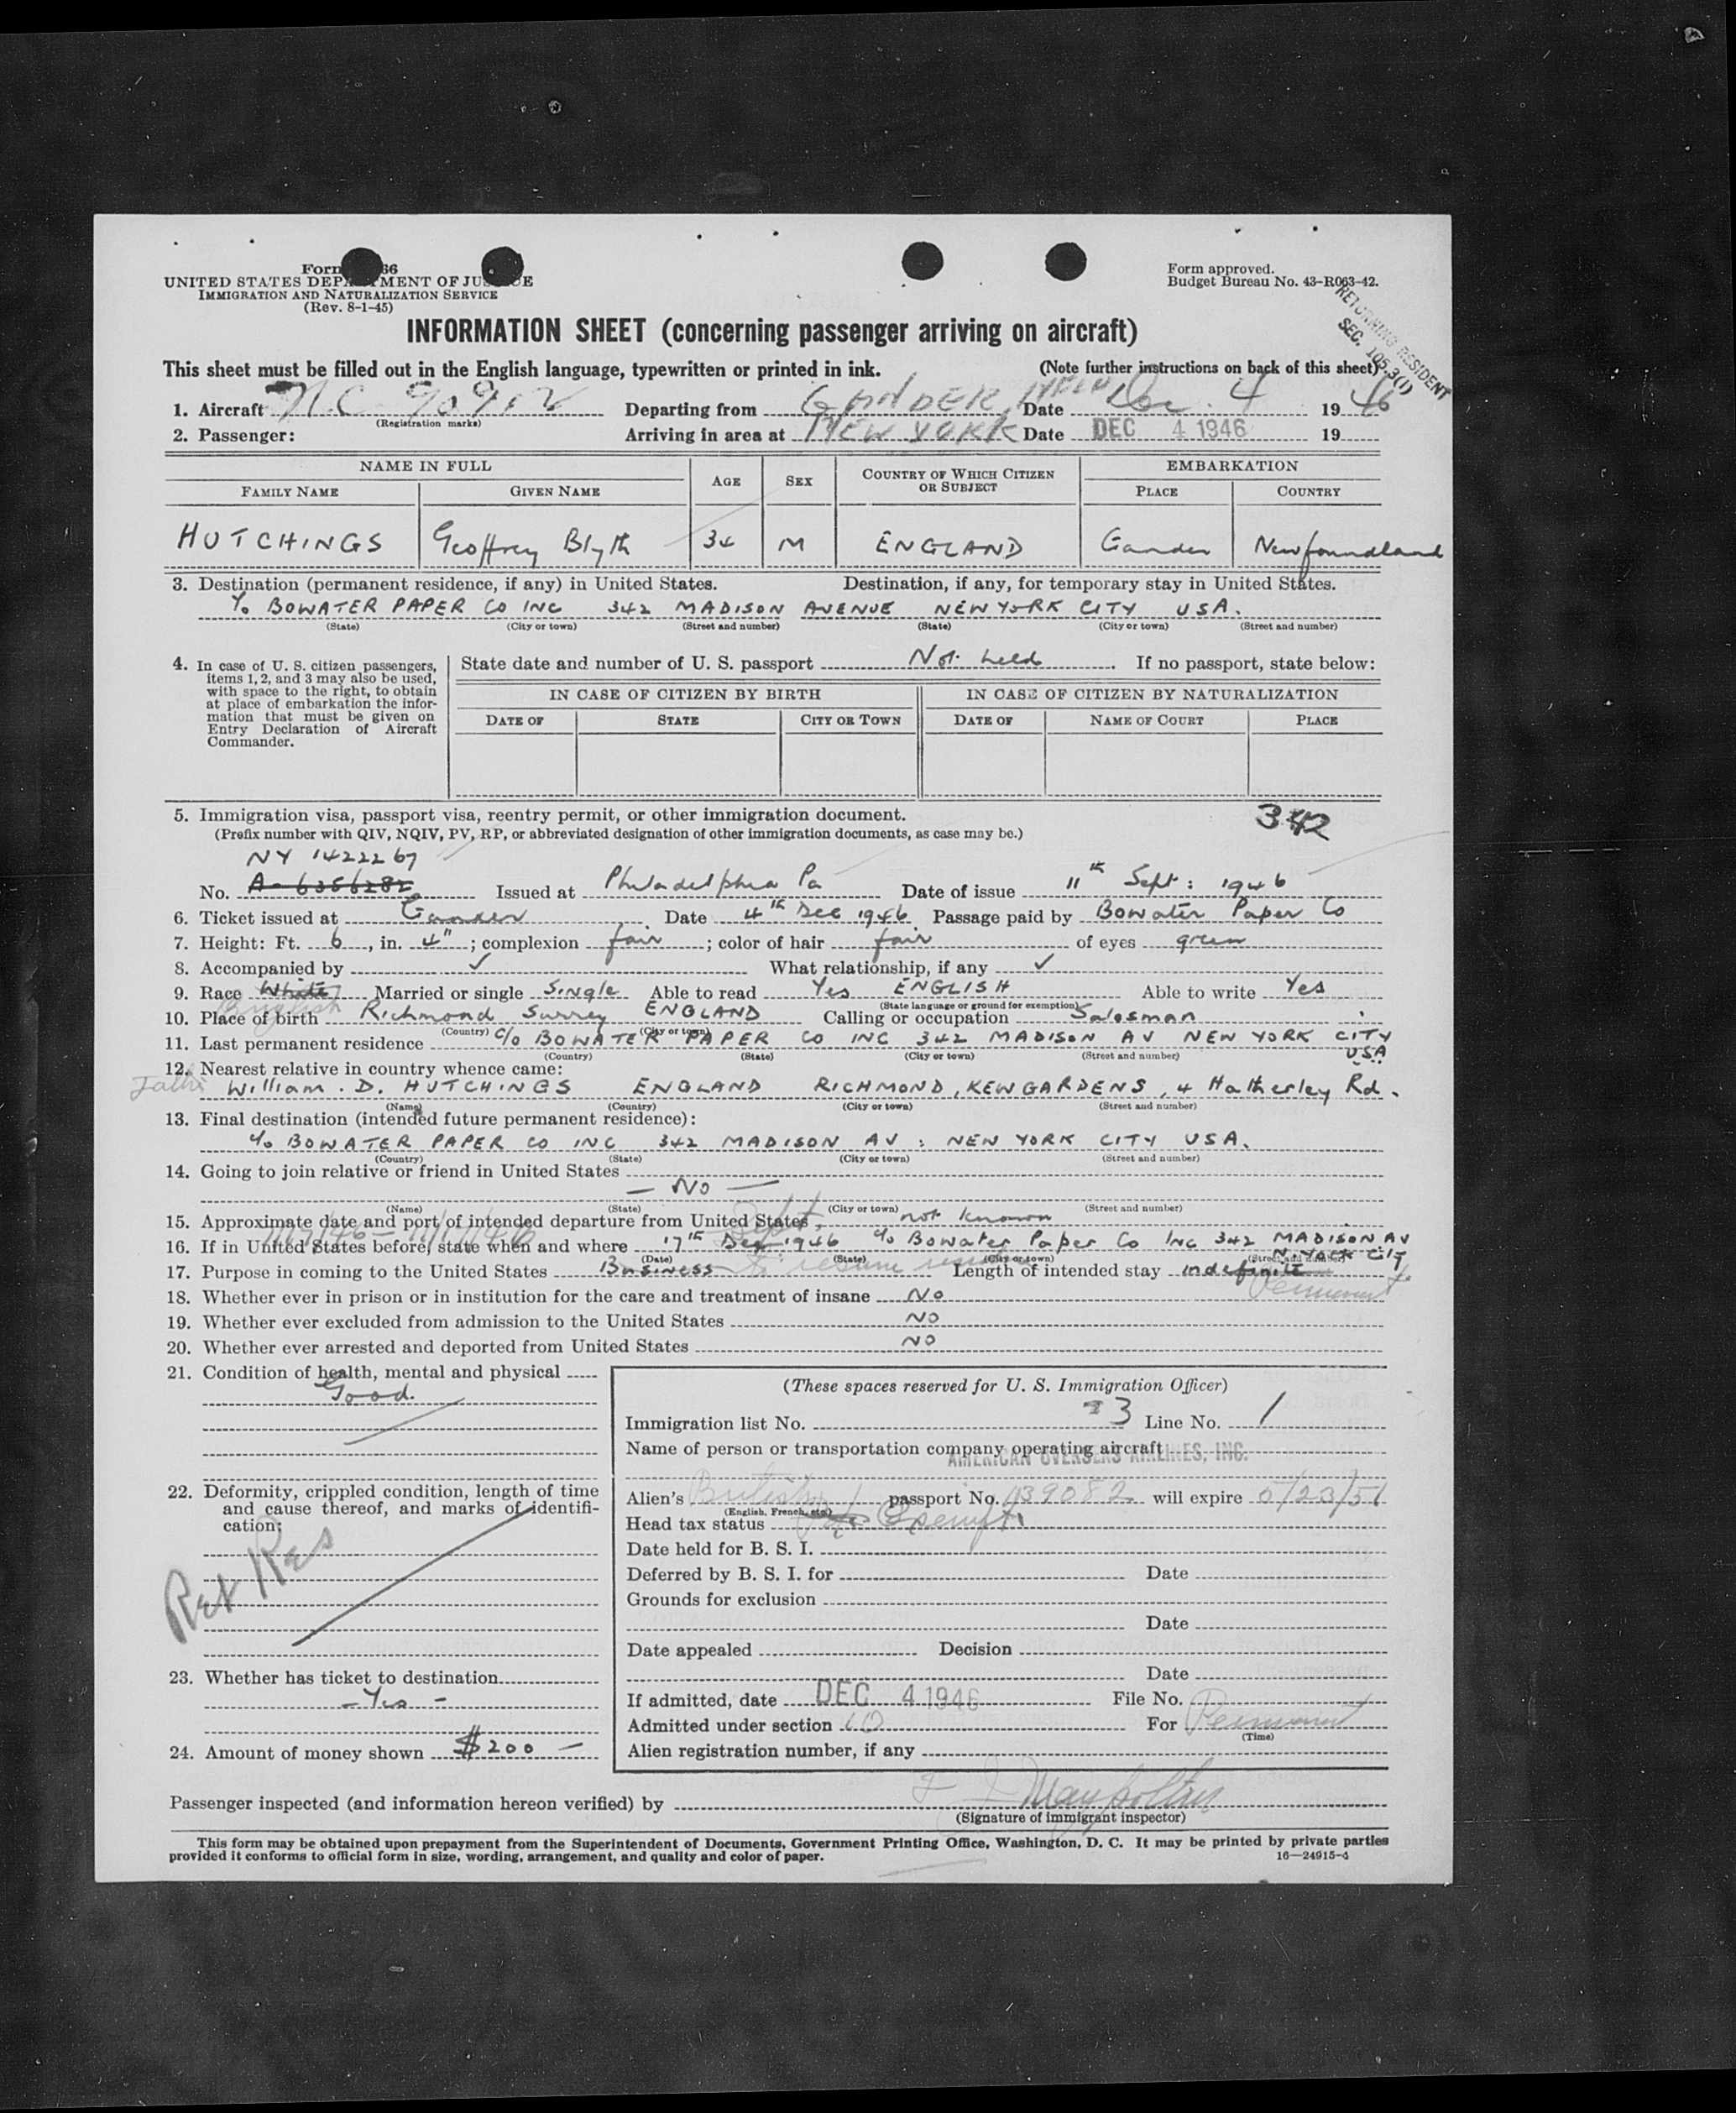 Form 66
UNITED STATES DEPARTMENT OF JUSTICE
IMMIGRATION AND NATURALIZATION SERVICE
(Rev. 8-1-45)
Form approved.
Budget Bureau No. 43-R063-42.
RETURNING RESIDENT
SEC. 105.3(1)
INFORMATION SHEET (concerning passenger arriving on aircraft)
This sheet must be filled out in the English language, typewritten or printed in ink. (Note further instructions on back of this sheet)
1. Aircraft NC 90912 Departing from GANDER, NFLD Date Dec. 4 1946
(Registration marks)
2. Passenger: Arriving in area at NEW YORK Date DEC 4 1946 19
NAME IN FULL AGE SEX COUNTRY OF WHICH CITIZEN OR SUBJECT EMBARKATION
FAMILY NAME GIVEN NAME PLACE COUNTRY
HUTCHINGS Geoffrey Blyth 34 M ENGLAND Gander Newfoundland
3. Destination (permanent residence, if any) in United States. Destination, if any, for temporary stay in United States.
c/o BOWATER PAPER CO INC 342 MADISON AVENUE NEW YORK CITY USA.
(State) (City or town) (Street and number) (State) (City or town) (Street and number)
4. In case of U. S. citizen passengers, items 1, 2, and 3 may also be used, with space to the right, to obtain at place of embarkation the information that must be given on Entry Declaration of Aircraft Commander.
State date and number of U. S. passport Not held. If no passport, state below:
IN CASE OF CITIZEN BY BIRTH IN CASE OF CITIZEN BY NATURALIZATION
DATE OF STATE CITY OR TOWN DATE OF NAME OF COURT PLACE
5. Immigration visa, passport visa, reentry permit, or other immigration document. 342
(Prefix number with QIV, NQIV, PV, RP, or abbreviated designation of other immigration documents, as case may be.)
NY 1422267
No. A-6356282 Issued at Philadelphia Pa Date of issue 11th Sept: 1946
6. Ticket issued at Gander Date 4th Dec 1946 Passage paid by Bowater Paper Co
7. Height: Ft. 6, in. 4"; complexion fair; color of hair fair of eyes green
8. Accompanied by ✓ What relationship, if any ✓
9. Race White Married or single Single Able to read Yes ENGLISH Able to write Yes
English (State language or ground for exemption)
10. Place of birth Richmond Surrey ENGLAND Calling or occupation Salesman
(Country) (City or town)
11. Last permanent residence c/o BOWATER PAPER CO INC 342 MADISON AV NEW YORK CITY USA
(Country) (State) (City or town) (Street and number)
12. Nearest relative in country whence came:
Father William. D. HUTCHINGS ENGLAND RICHMOND, KEW GARDENS, 4 Hatherley Rd.
(Name) (Country) (City or town) (Street and number)
13. Final destination (intended future permanent residence):
c/o BOWATER PAPER CO INC 342 MADISON AV: NEW YORK CITY USA.
(Country) (State) (City or town) (Street and number)
14. Going to join relative or friend in United States
— No —
(Name) (State) (City or town) (Street and number)
15. Approximate date and port of intended departure from United States not known
16. If in United States before, state when and where 17th Sept. Dec 1946 c/o Bowater Paper Co Inc 342 MADISON AV N. YORK CITY
(Date) (State) (City or town) (Street and number)
17. Purpose in coming to the United States Business to resume Length of intended stay indefinite Permanent
18. Whether ever in prison or in institution for the care and treatment of insane No
19. Whether ever excluded from admission to the United States NO
20. Whether ever arrested and deported from United States NO
21. Condition of health, mental and physical
Good.
22. Deformity, crippled condition, length of time and cause thereof, and marks of identification:
Ret Res
23. Whether has ticket to destination
- Yes -
24. Amount of money shown $200 —
(These spaces reserved for U. S. Immigration Officer)
Immigration list No. 3 Line No. 1
Name of person or transportation company operating aircraft
AMERICAN OVERSEAS AIRLINES, INC.
Alien's British passport No. 139082 will expire 5/23/51
(English, French, etc.)
Head tax status Exempt
Date held for B. S. I.
Deferred by B. S. I. for Date
Grounds for exclusion
Date
Date appealed Decision
Date
If admitted, date DEC 4 1946 File No.
Admitted under section 10 For Permanent
(Time)
Alien registration number, if any
Passenger inspected (and information hereon verified) by
(Signature of immigrant inspector)
This form may be obtained upon prepayment from the Superintendent of Documents, Government Printing Office, Washington, D. C. It may be printed by private parties
provided it conforms to official form in size, wording, arrangement, and quality and color of paper. 16—24915-4